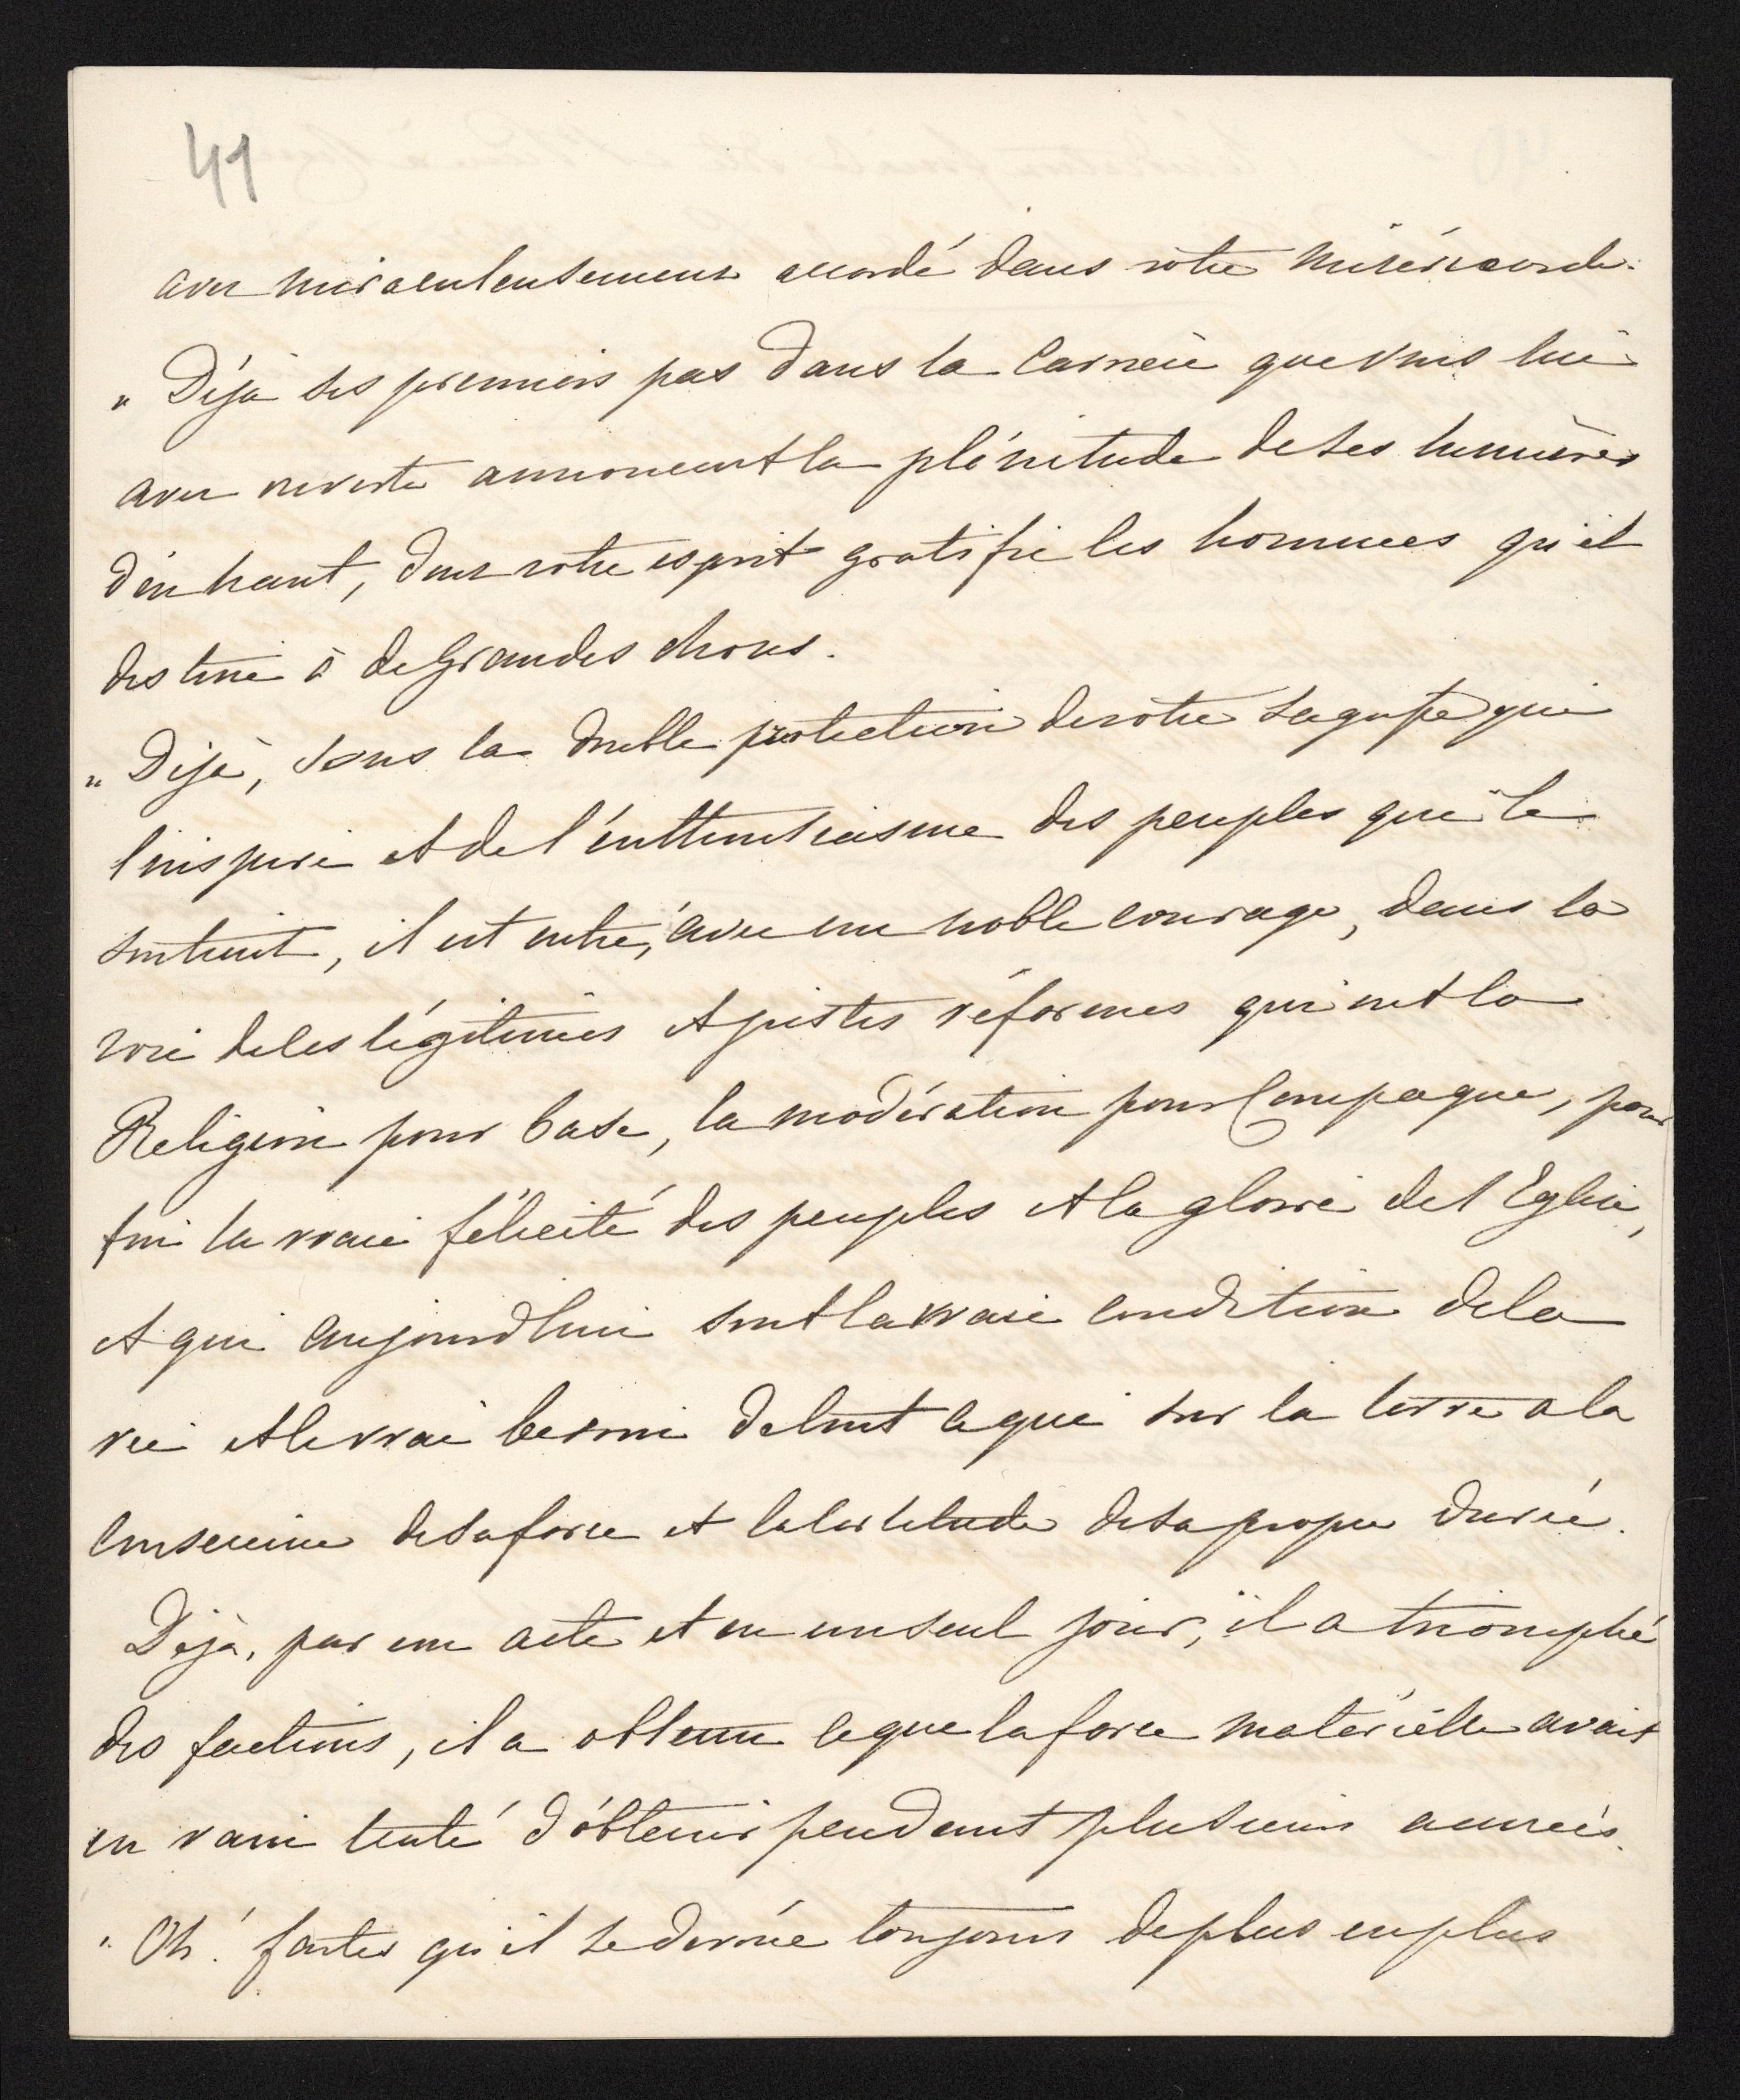 41
avez miraculeusement accordé dans votre miséricorde.
" Déjà ses premiers pas dans la Carrière que vous lui
avez ouverte annoncent la plénitude de ses lumières
d'en haut, dont votre esprit gratifie les hommes qu'il
destine à de Grandes choses.
" Déjà, sous la double protection de votre sagesse qui
l'inspire et de l'enthousiasme des peuples qui le
soutient, il est entré, avec un noble courage, dans la
voie de ces légitimes et justes réformes qui ont la
Religion pour base, la modération pour Compagne, pour
fin la vraie félicité des peuples et la gloire de l'Eglise,
et qui aujourd'hui sont la vraie condition de la
vie et le vrai besoin de tout ce qui sur la terre a la
conscience de sa force et la certitude de sa propre durée.
Déjà, par un acte et en un seul jour, il a triomphé
des factions, il a obtenu ce que la force matérielle avait
en vain tenté d'obtenir pendant plusieurs années.
" Oh! faites qu'il se dévoue toujours de plus en plus